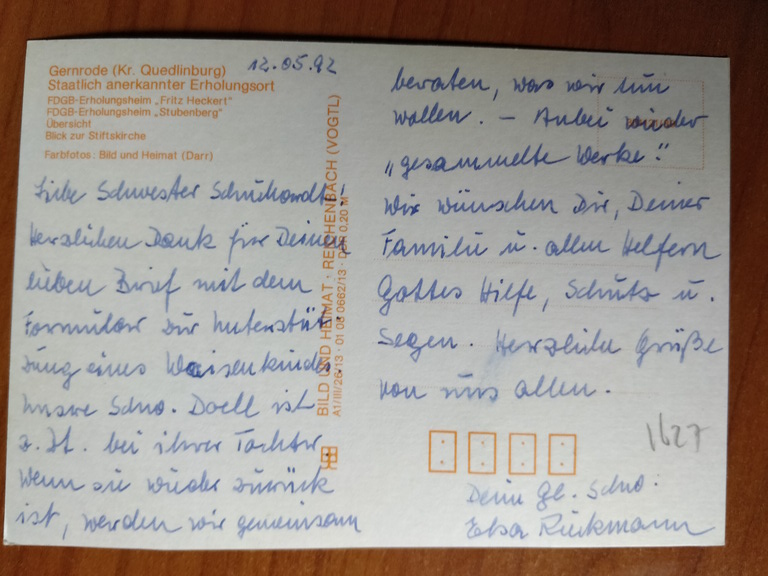 Gernrode (Kr. Quedlinburg)
Staatlich anerkannter Erholungsort
FDGB-Erholungsheim „Fritz Heckert“
FDGB-Erholungsheim „Stubenberg“
Übersicht
Blick zur Stiftskirche
Farbfotos: Bild und Heimat (Darr)
12.05.92
Liebe Schwester Schuhardt,
Herzlichen Dank für Deinen
lieben Brief mit dem
Formular zur Unterstüt-
zung eines Waisenkindes.
Unsre Schw. Doell ist
z. Zt. bei ihrer Tochter.
Wenn sie wieder zurück
ist, werden wir gemeinsam
BILD UND HEIMAT · REICHENBACH (VOGTL)
A1/III/26/13 · 01 06 0662/13 · DDR 0,20 M
beraten, was wir tun
wollen. – Anbei wieder
„gesammelte Werke“.
Wir wünschen Dir, Deiner
Familie u. allen Helfern
Gottes Hilfe, Schutz u.
Segen. Herzliche Grüße
von uns allen.
1627
Deine Gl. Schw.
Elsa Rückmann